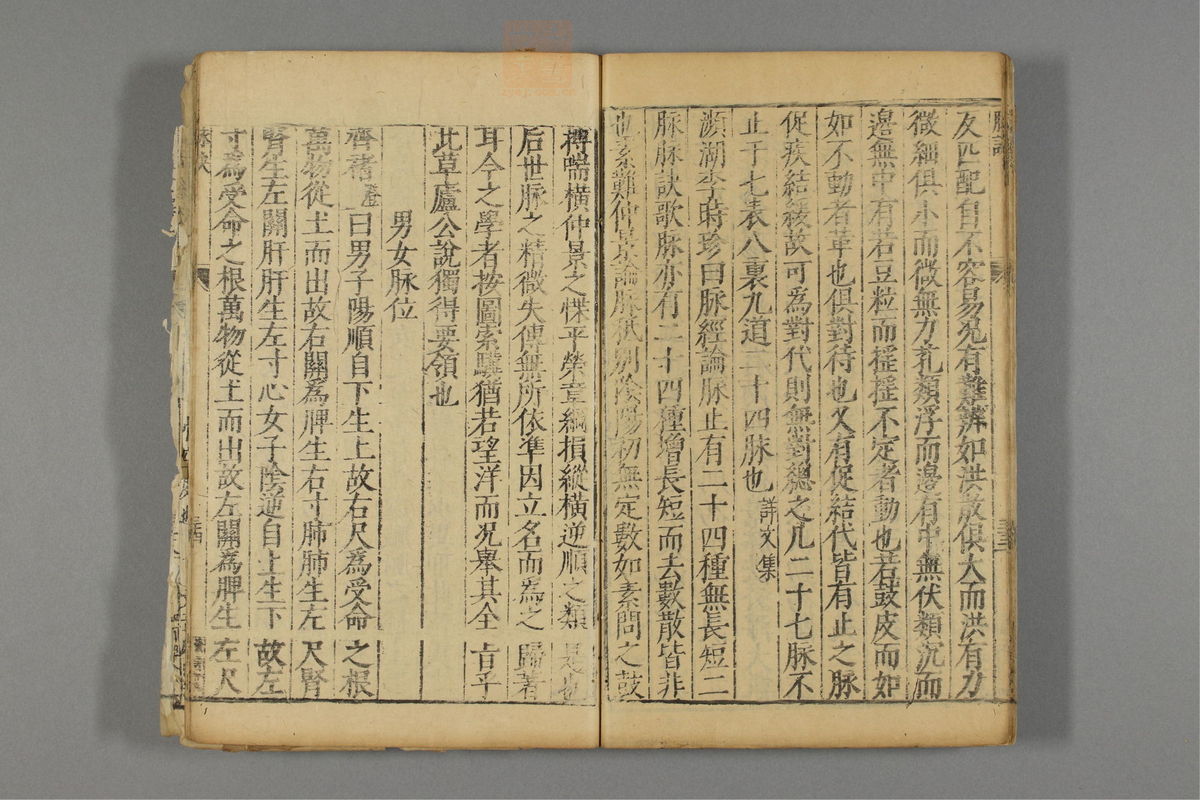 脉訣
友匹配自不容易况有難辨如洪散俱大而洪有力
微細俱小而微無力芤類浮而邊有中無伏類沉而
邊無中有若豆粒而揺揺不定者動也若鼓皮而如
如不動者革也俱對待也又有促結代皆有止之脉
促疾結緩故可為對代則無對總之凡二十七脉不
止于七表八裏九道二十四脉也詳文集
瀕湖李時珍曰脉經論脉止有二十四種無長短二
脉脉訣歌脉亦有二十四種增長短而去數散皆非
也素難仲景論脉秪别陰陽初無定數如素問之鼓
搏喘横仲景之惵平榮章綱損縱横逆順之類是也
后世脉之精微失傳無所依準因立名而為之歸著
耳今之學者按圖索驥猶若望洋而况舉其全旨乎
此草廬公說獨得要領也
男女脉位
齊褚澄曰男子陽順自下生上故右尺為受命之根
萬物從土而出故右關為脾生右寸肺肺生左尺腎
腎生左關肝肝生左寸心女子陰逆自上生下故左
寸為受命之根萬物從土而出故左關為脾生左尺